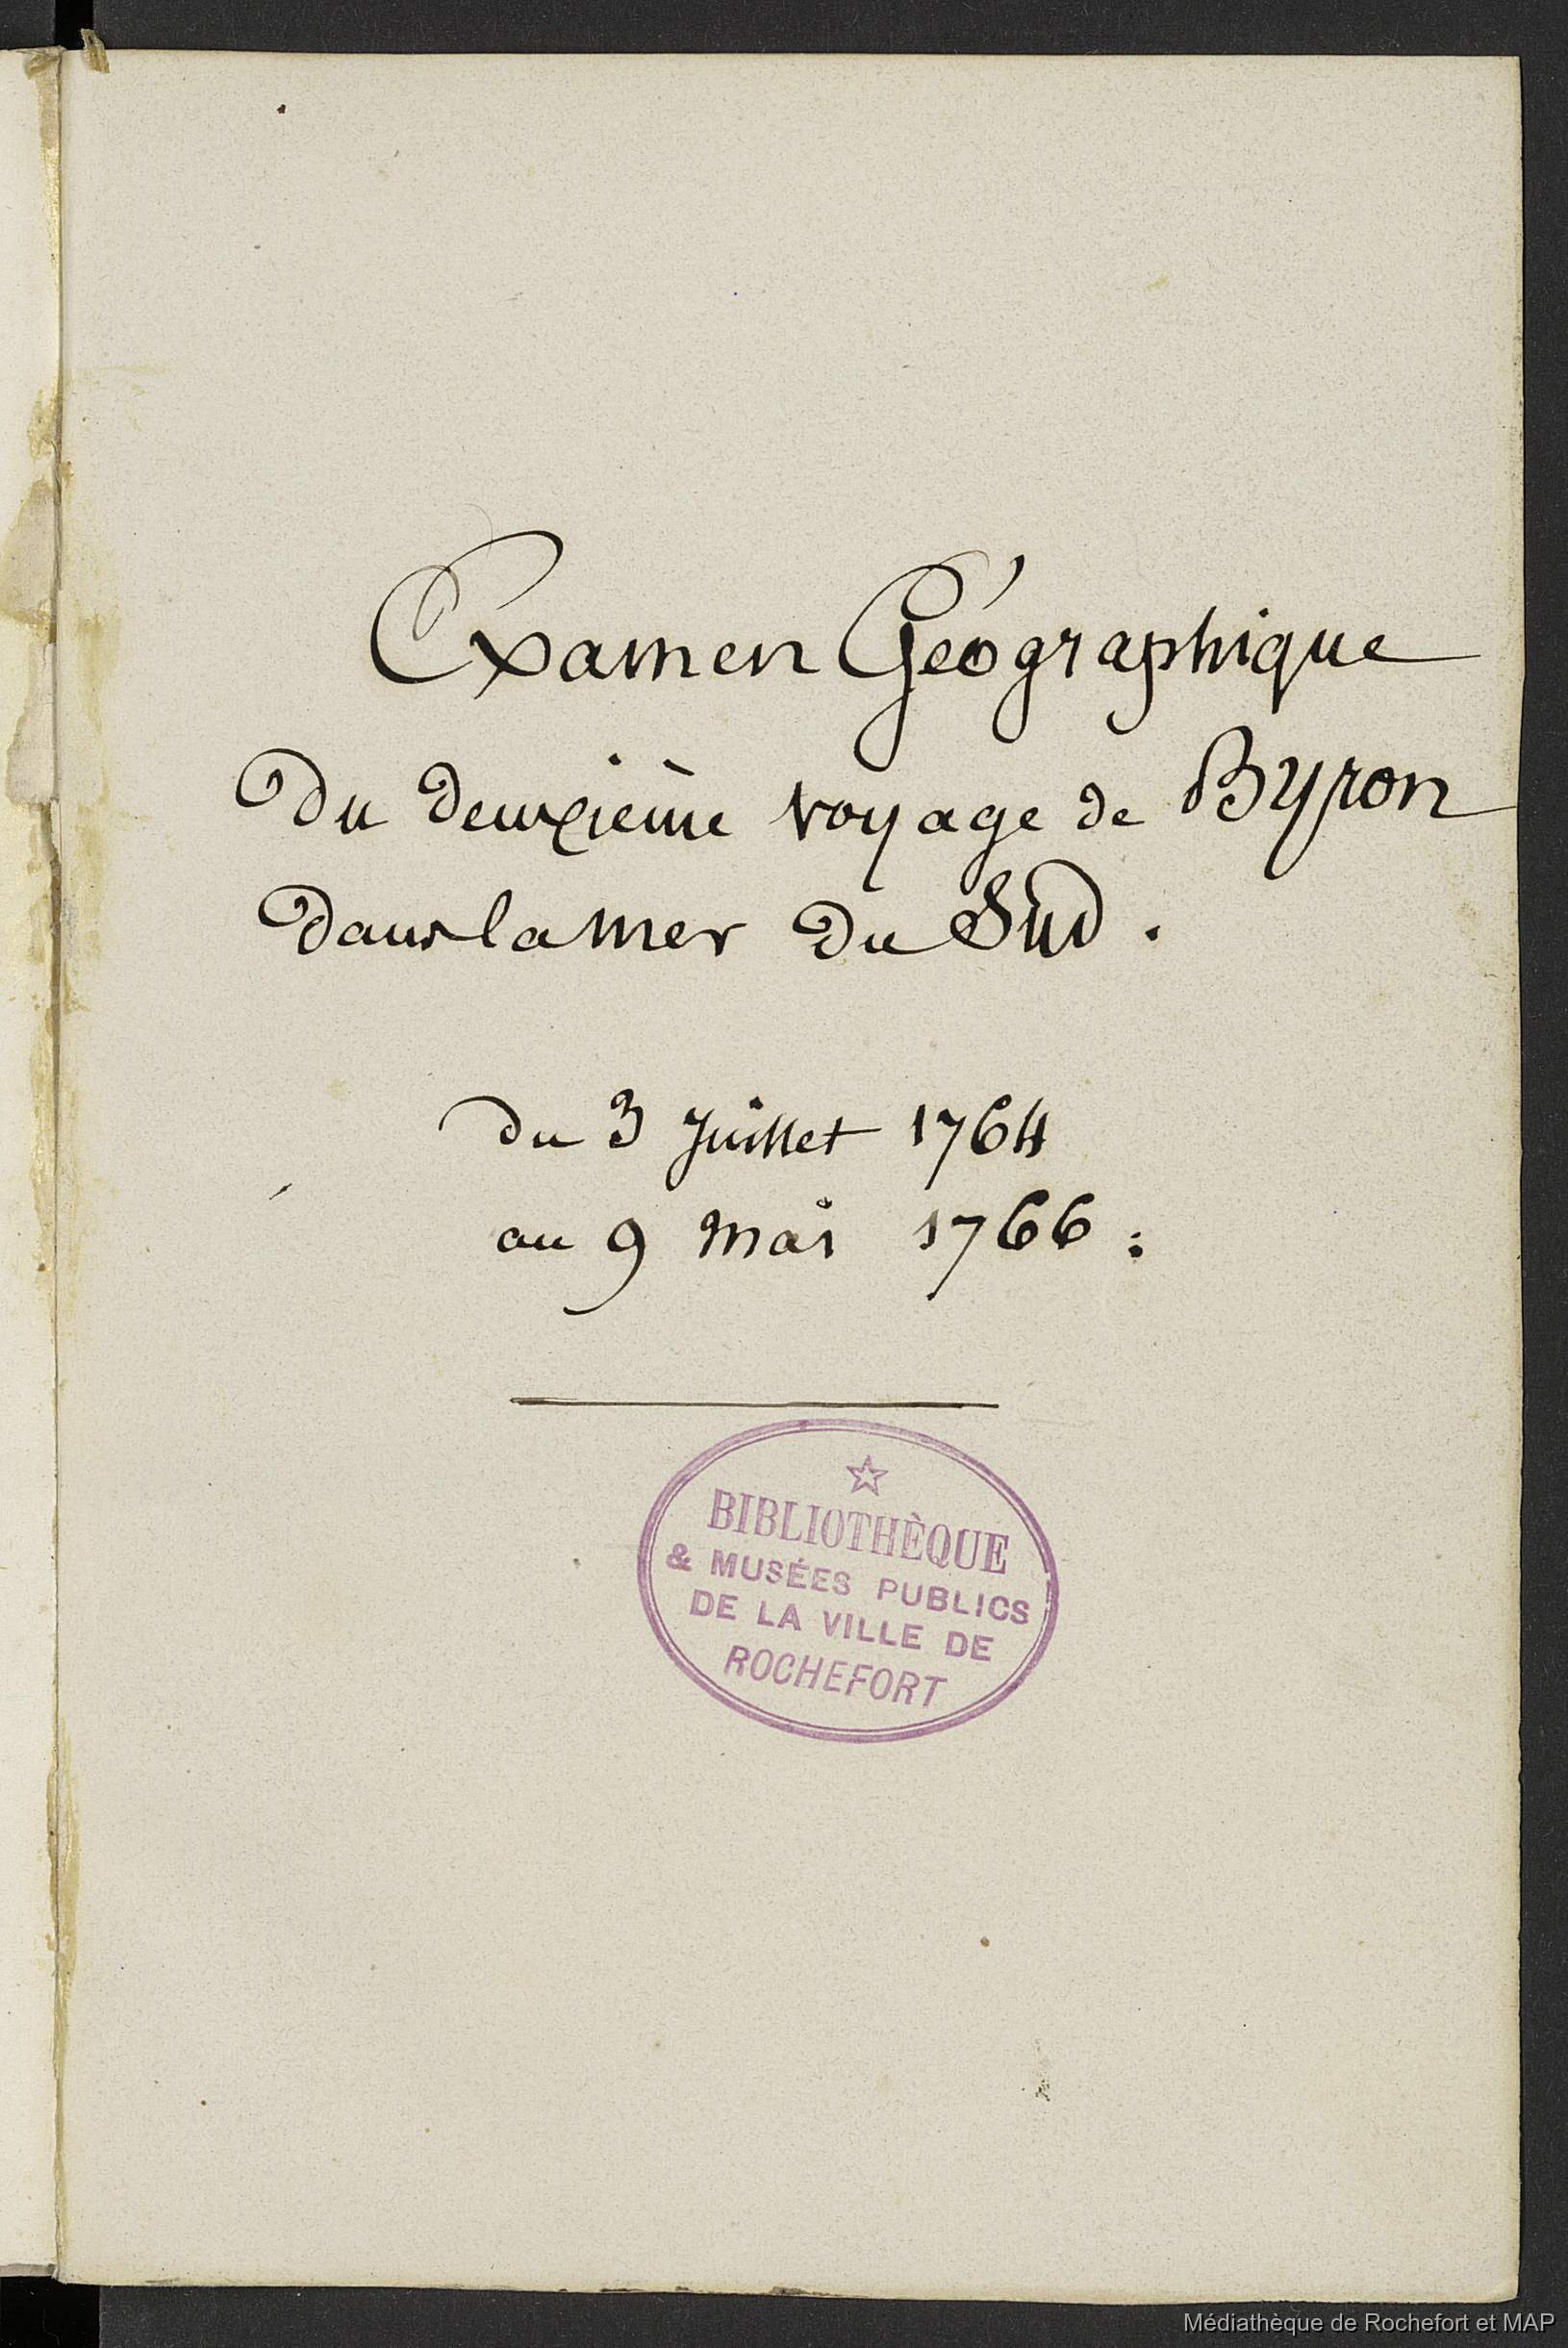 Examen Géographique
Du deuxième voyage de Byron
Dans la mer Du Sud.
Du 3 Juillet 1764
au 9 mai 1766.
BIBLIOTHÈQUE
& MUSÉES PUBLICS
DE LA VILLE DE
ROCHEFORT
Médiathèque de Rochefort et MAP